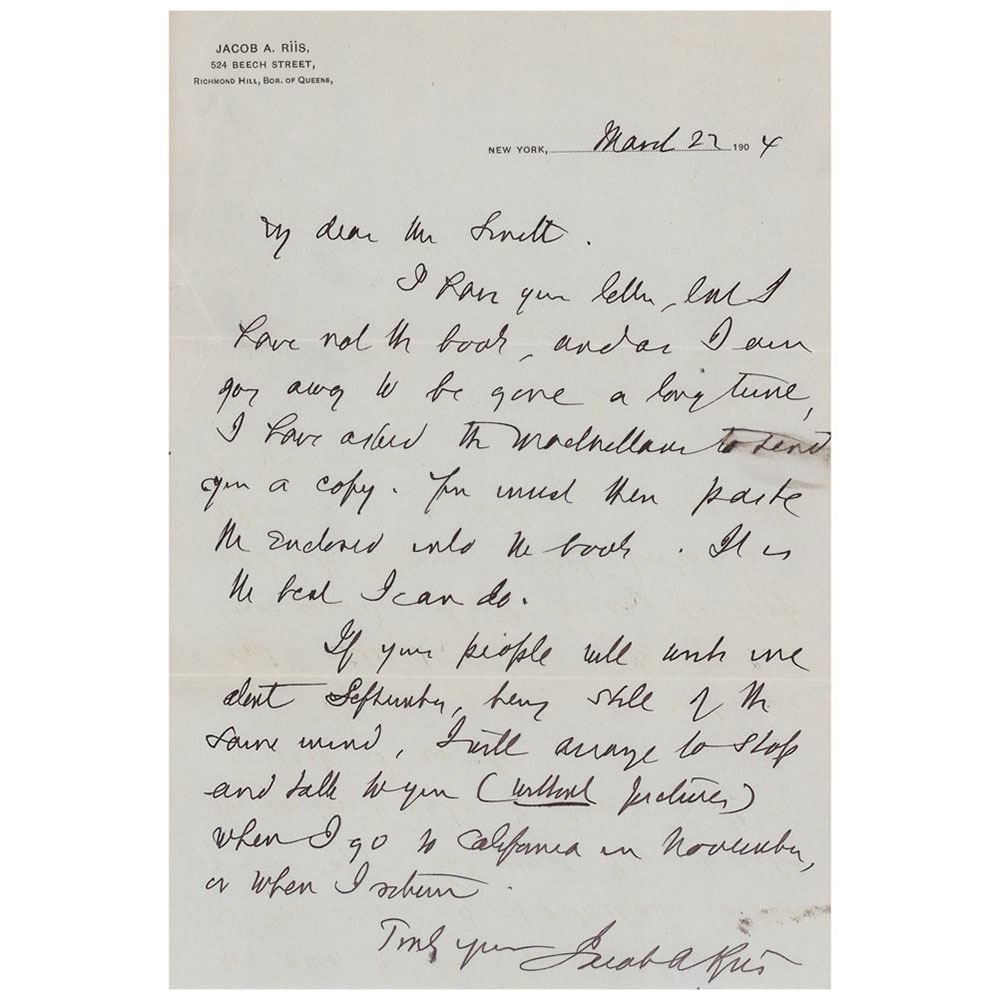 JACOB A. RIIS,
524 BEECH STREET,
RICHMOND HILL, BOR. OF QUEENS,
NEW YORK, March 22 1904
My dear Mr
I have your letter, but I
have not the book, and as I am
going away to be gone a long time,
I have asked the Macmillans to send
you a copy. You must then paste
the enclosed into the book. It is
the best I can do.
If your people will write me
about September, being still of the
same mind, I will arrange to stop
and talk to you (without pictures)
when I go to California in November,
or when I return.
Truly yours Jacob A Riis